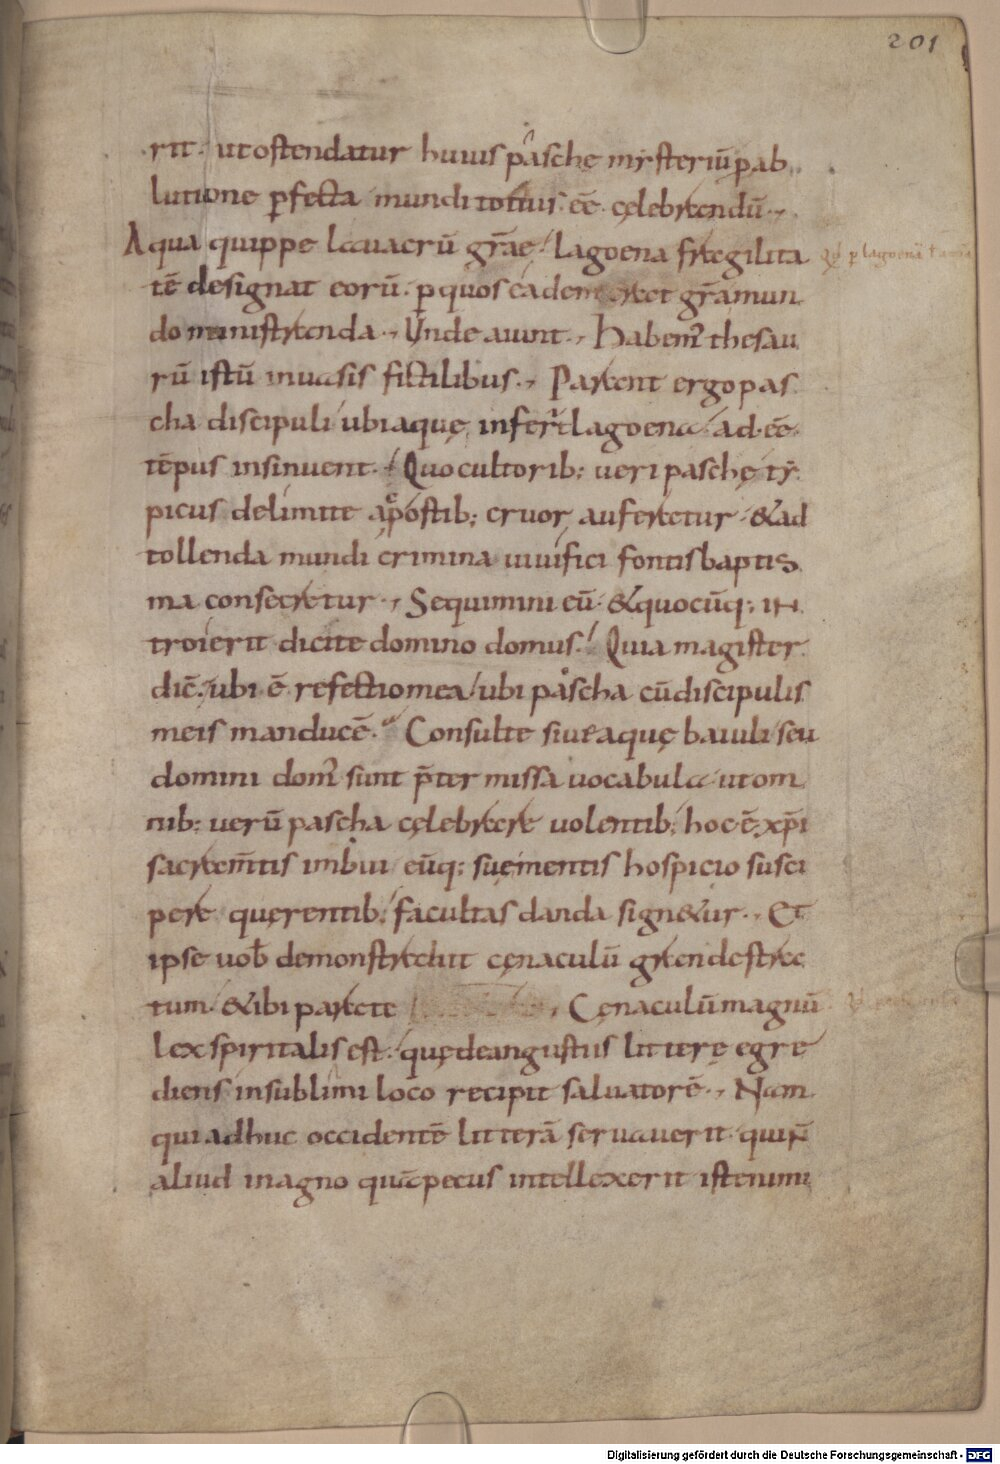 201
rit. ut ostendatur huius paschę mysteriū p ab
lutione pfecta mundi totius eē cęlebrandū.,
Aqua quippe lauacrū grāę. lagoena fragilita
tē designat eorū. p quos eadem erat grā mun
do ministranda., Unde aiunt., Habem' thesau
rū istū in uasis fictilibus., Parent ergo pas
cha discipuli ubi aquę infert' lagoena. ad eē
tēpus insinuent. Quo cultorib; ueri paschę ty
picus de limite ł postib; cruor auferetur. & ad
tollenda mundi crimina uiuifici fontis baptis
ma consecretur., Sequimini eū. & quocūq; in
troierit dicite domino domus. Quia magister
dic̄. ubi ē refectio mea. ubi pascha cū discipulis
meis manducē. Consulte siue aquę baiuli seu
domini dom' sunt p̄termissa uocabula. ut om
nib; uerū pascha cęlebrare uolentib; hoc ē xp̄i
sacram̄tis imbui eūq; suę mentis hospicio susci
pere querentib; facultas danda sign&ur., Et
ipse uob̄ demonstrabit cęnaculū grande stra
tum. & ibi parate., Cęnaculū magnū
lex spiritalis est. quę de angustiis litterę egre
diens in sublimi loco recipit saluatorē., Nam
qui adhuc occidentē litterā seruauerit. qui n̄
aliud in agno quā pecus intellexerit iste nimi
Digitalisierung gefördert durch die Deutsche Forschungsgemeinschaft - DFG